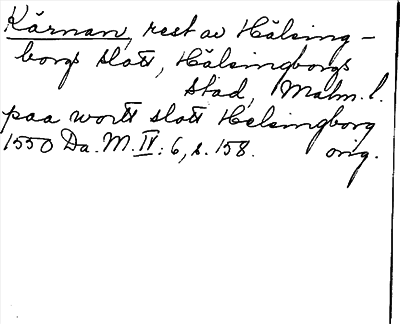 Kärnan, rest av Hälsing-
borgs slott, Hälsingborgs
stad, Malm. l.
paa wortt slott Helsingborg
1550 Da. M. IV: 6, s. 158. orig.